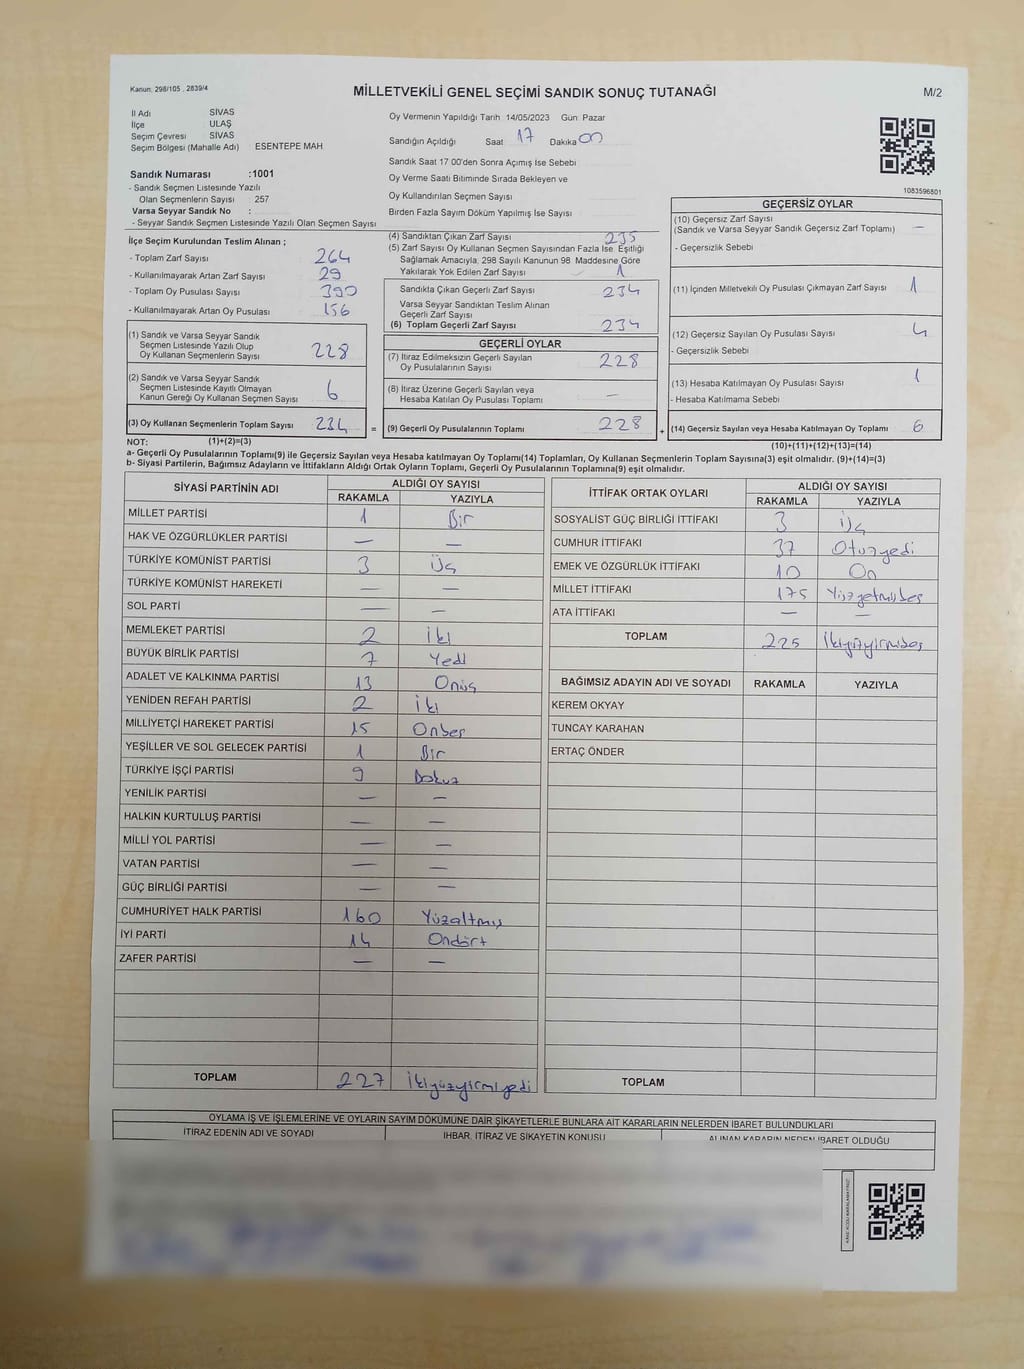 Kanun: 298/105 , 2839/4
MİLLETVEKİLİ GENEL SEÇİMİ SANDIK SONUÇ TUTANAĞI
M/2
İl Adı SİVAS
İlçe ULAŞ
Seçim Çevresi SİVAS
Seçim Bölgesi (Mahalle Adı) ESENTEPE MAH
Sandık Numarası :1001
- Sandık Seçmen Listesinde Yazılı
Olan Seçmenlerin Sayısı 257
Varsa Seyyar Sandık No :
- Seyyar Sandık Seçmen Listesinde Yazılı Olan Seçmen Sayısı
Oy Vermenin Yapıldığı Tarih 14/05/2023 Gün: Pazar
Sandığın Açıldığı Saat 17 Dakika 00
Sandık Saat 17 00'den Sonra Açımış İse Sebebi
Oy Verme Saati Bitiminde Sırada Bekleyen ve
Oy Kullandırılan Seçmen Sayısı
Birden Fazla Sayım Döküm Yapılmış İse Sayısı
1083596801
İlçe Seçim Kurulundan Teslim Alınan ;
- Toplam Zarf Sayısı 264
- Kullanılmayarak Artan Zarf Sayısı 29
- Toplam Oy Pusulası Sayısı 390
- Kullanılmayarak Artan Oy Pusulası 156
(1) Sandık ve Varsa Seyyar Sandık
Seçmen Listesinde Yazılı Olup
Oy Kullanan Seçmenlerin Sayısı 228
(2) Sandık ve Varsa Seyyar Sandık
Seçmen Listesinde Kayıtlı Olmayan
Kanun Gereği Oy Kullanan Seçmen Sayısı 6
(3) Oy Kullanan Seçmenlerin Toplam Sayısı 234 =
(4) Sandıktan Çıkan Zarf Sayısı 235
(5) Zarf Sayısı Oy Kullanan Seçmen Sayısından Fazla İse, Eşitliği
Sağlamak Amacıyla, 298 Sayılı Kanunun 98. Maddesine Göre
Yakılarak Yok Edilen Zarf Sayısı 1
Sandıkta Çıkan Geçerli Zarf Sayısı 234
Varsa Seyyar Sandıktan Teslim Alınan
Geçerli Zarf Sayısı
(6) Toplam Geçerli Zarf Sayısı 234
GEÇERLİ OYLAR
(7) İtiraz Edilmeksizin Geçerli Sayılan
Oy Pusulalarının Sayısı 228
(8) İtiraz Üzerine Geçerli Sayılan veya
Hesaba Katılan Oy Pusulası Toplamı —
(9) Geçerli Oy Pusulalarının Toplamı 228 +
GEÇERSİZ OYLAR
(10) Geçersiz Zarf Sayısı
(Sandık ve Varsa Seyyar Sandık Geçersiz Zarf Toplamı) —
- Geçersizlik Sebebi
(11) İçinden Milletvekili Oy Pusulası Çıkmayan Zarf Sayısı 1
(12) Geçersiz Sayılan Oy Pusulası Sayısı 4
- Geçersizlik Sebebi
(13) Hesaba Katılmayan Oy Pusulası Sayısı 1
- Hesaba Katılmama Sebebi
(14) Geçersiz Sayılan veya Hesaba Katılmayan Oy Toplamı 6
NOT: (1)+(2)=(3)
(10)+(11)+(12)+(13)=(14)
a- Geçerli Oy Pusulasının Toplamı(9) ile Geçersiz Sayılan veya Hesaba katılmayan Oy Toplamı(14) Toplamları, Oy Kullanan Seçmenlerin Toplam Sayısına(3) eşit olmalıdır. (9)+(14)=(3)
b- Siyasi Partilerin, Bağımsız Adayların ve İttifakların Aldığı Ortak Oyların Toplamı, Geçerli Oy Pusulalarının Toplamına(9) eşit olmalıdır.
SİYASİ PARTİNİN ADI ALDIĞI OY SAYISI
RAKAMLA YAZIYLA
MİLLET PARTİSİ 1 Bir
HAK VE ÖZGÜRLÜKLER PARTİSİ — —
TÜRKİYE KOMÜNİST PARTİSİ 3 Üç
TÜRKİYE KOMÜNİST HAREKETİ — —
SOL PARTİ — —
MEMLEKET PARTİSİ 2 İki
BÜYÜK BİRLİK PARTİSİ 7 Yedi
ADALET VE KALKINMA PARTİSİ 13 Onüç
YENİDEN REFAH PARTİSİ 2 İki
MİLLİYETÇİ HAREKET PARTİSİ 15 Onbeş
YEŞİLLER VE SOL GELECEK PARTİSİ 1 Bir
TÜRKİYE İŞÇİ PARTİSİ 9 Dokuz
YENİLİK PARTİSİ — —
HALKIN KURTULUŞ PARTİSİ — —
MİLLİ YOL PARTİSİ — —
VATAN PARTİSİ — —
GÜÇ BİRLİĞİ PARTİSİ — —
CUMHURİYET HALK PARTİSİ 160 Yüzaltmış
İYİ PARTİ 14 Ondört
ZAFER PARTİSİ — —
TOPLAM 227 İkiyüzyirmiyedi
İTTİFAK ORTAK OYLARI ALDIĞI OY SAYISI
RAKAMLA YAZIYLA
SOSYALİST GÜÇ BİRLİĞİ İTTİFAKI 3 Üç
CUMHUR İTTİFAKI 37 Otuzyedi
EMEK VE ÖZGÜRLÜK İTTİFAKI 10 On
MİLLET İTTİFAKI 175 Yüzyetmişbeş
ATA İTTİFAKI — —
TOPLAM 225 İkiyüzyirmibeş
BAĞIMSIZ ADAYIN ADI VE SOYADI RAKAMLA YAZIYLA
KEREM OKYAY
TUNCAY KARAHAN
ERTAÇ ÖNDER
TOPLAM
OYLAMA İŞ VE İŞLEMLERİNE VE OYLARIN SAYIM DÖKÜMÜNE DAİR ŞİKAYETLERLE BUNLARA AİT KARARLARIN NELERDEN İBARET BULUNDUKLARI
İTİRAZ EDENİN ADI VE SOYADI İHBAR, İTİRAZ VE ŞİKAYETİN KONUSU ALINAN KARARIN NEDEN İBARET OLDUĞU